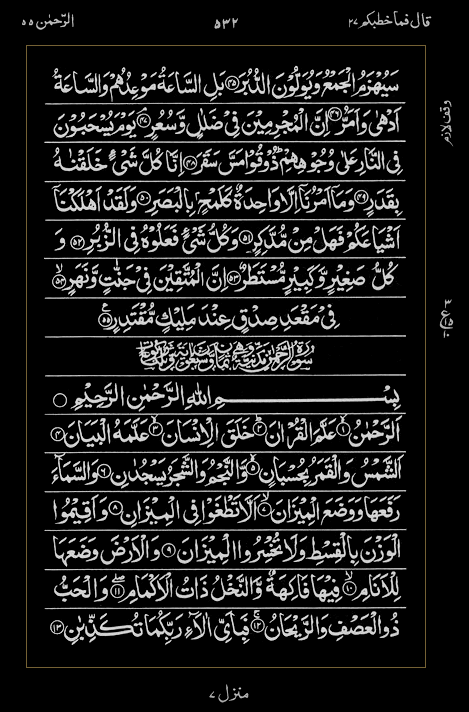 قال فما خطبكم ٢٧ ۵٣٢ الرّحمٰن ۵۵
سَيُهْزَمُ الْجَمْعُ وَيُوَلُّوْنَ الدُّبُرَ ﴿۴۵﴾ بَلِ السَّاعَةُ مَوْعِدُهُمْ وَالسَّاعَةُ
اَدْهٰى وَاَمَرُّ ﴿۴۶﴾ اِنَّ الْمُجْرِمِيْنَ فِيْ ضَلٰلٍ وَّسُعُرٍ ﴿۴۷﴾ يَوْمَ يُسْحَبُوْنَ
وقف لازم
فِي النَّارِ عَلٰى وُجُوْهِهِمْ ؕ ذُوْقُوْا مَسَّ سَقَرَ ﴿۴۸﴾ اِنَّا كُلَّ شَيْءٍ خَلَقْنٰهُ
بِقَدَرٍ ﴿۴۹﴾ وَمَاۤ اَمْرُنَاۤ اِلَّا وَاحِدَةٌ كَلَمْحٍۭ بِالْبَصَرِ ﴿۵۰﴾ وَلَقَدْ اَهْلَكْنَاۤ
اَشْيَاعَكُمْ فَهَلْ مِنْ مُّدَّكِرٍ ﴿۵۱﴾ وَكُلُّ شَيْءٍ فَعَلُوْهُ فِي الزُّبُرِ ﴿۵۲﴾ وَ
كُلُّ صَغِيْرٍ وَّكَبِيْرٍ مُّسْتَطَرٌ ﴿۵۳﴾ اِنَّ الْمُتَّقِيْنَ فِيْ جَنّٰتٍ وَّنَهَرٍ ﴿۵۴﴾ۙ
فِيْ مَقْعَدِ صِدْقٍ عِنْدَ مَلِيْكٍ مُّقْتَدِرٍ ﴿۵۵﴾
سُوْرَةُ الرَّحْمٰنِ مَدَنِيَّةٌ وَّهِيَ ثَمَانٌ وَّسَبْعُوْنَ اٰيَةً
بِسْـــــــمِ اللهِ الرَّحْمٰنِ الرَّحِيْمِ ○
اَلرَّحْمٰنُ ﴿۱﴾ عَلَّمَ الْقُرْاٰنَ ﴿۲﴾ خَلَقَ الْاِنْسَانَ ﴿۳﴾ عَلَّمَهُ الْبَيَانَ ﴿۴﴾
اَلشَّمْسُ وَالْقَمَرُ بِحُسْبَانٍ ﴿۵﴾ وَّالنَّجْمُ وَالشَّجَرُ يَسْجُدٰنِ ﴿۶﴾ وَالسَّمَآءَ
رَفَعَهَا وَوَضَعَ الْمِيْزَانَ ﴿۷﴾ اَلَّا تَطْغَوْا فِي الْمِيْزَانِ ﴿۸﴾ وَاَقِيْمُوا
الْوَزْنَ بِالْقِسْطِ وَلَا تُخْسِرُوا الْمِيْزَانَ ﴿۹﴾ وَالْاَرْضَ وَضَعَهَا
لِلْاَنَامِ ﴿۱۰﴾ۙ فِيْهَا فَاكِهَةٌ وَّالنَّخْلُ ذَاتُ الْاَكْمَامِ ﴿۱۱﴾ وَالْحَبُّ
ذُو الْعَصْفِ وَالرَّيْحَانُ ﴿۱۲﴾ فَبِاَيِّ اٰلَآءِ رَبِّكُمَا تُكَذِّبٰنِ ﴿۱۳﴾
منزل ٧